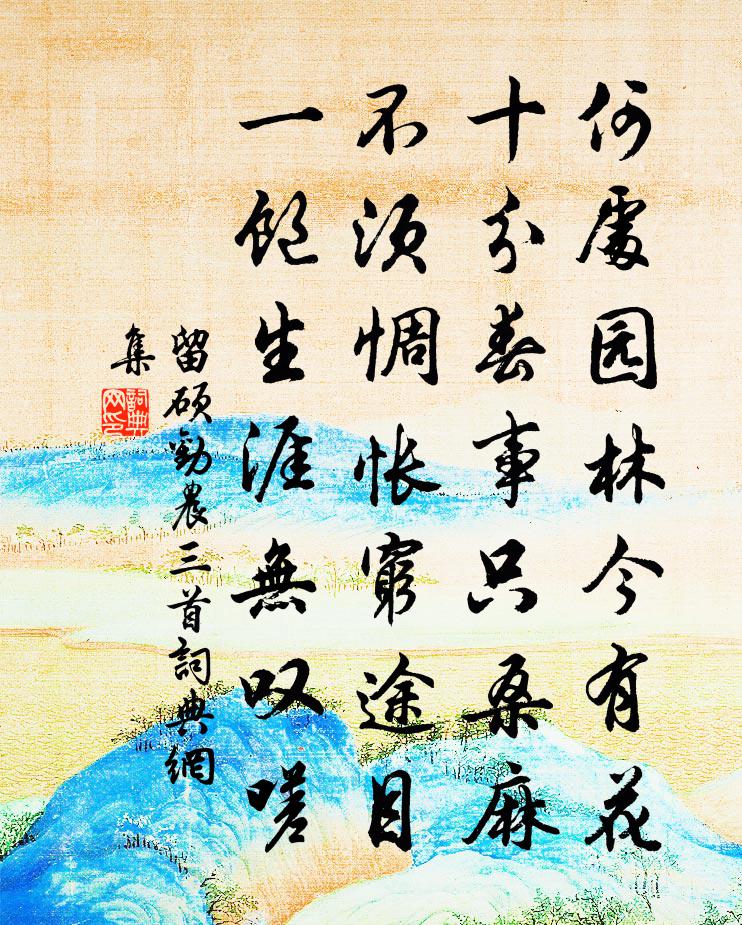 何處园林今有花
十分春事只桑麻
不須惆悵窮途目
一飽生涯無叹嗟
留硕勸農三首詞典網
集
詞典
网印